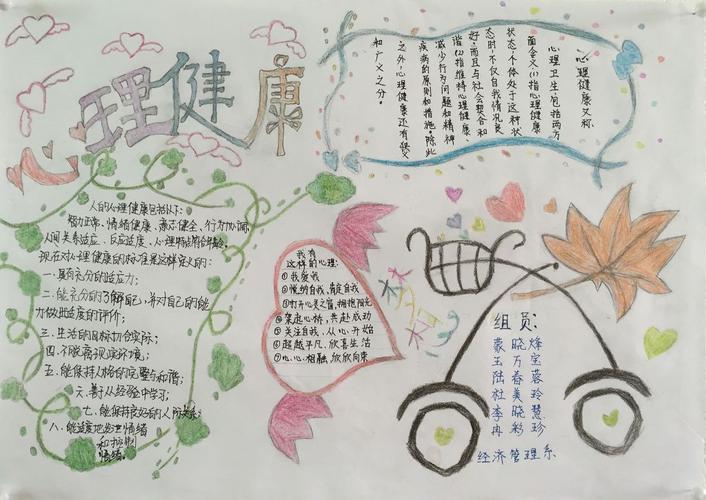 心理健康
心理健康又称
心理卫生包括两方
面含义(1)指心理健康
状态,个体处于这种状
态时,不仅自我情况良
好,而且与社会契合和
谐(2)指维持心理健康、
减少行为问题和精神
疾病的原则和措施。除此
之外,心理健康还有狭义
和广义之分。
人的心理健康包括以下:
智力正常、情绪健康、意志健全、行为协调、
人间关系适应、反应适度、心理特点符合年龄。
现在对心理健康的标准是这样定义的:
一、具有充分的适应力;
二、能充分的了解自己,并对自己的能
力做出适度的评价;
三、生活的目标切合实际;
四、不脱离现实环境;
五、能保持人格的完整与和谐;
六、善于从经验中学习;
七、能保持良好的人际关系;
八、能适度地发泄情绪
和控制
情绪。
我有
这样的心理:
①我爱我
②悦纳自我,肯定自我
③打开心灵之窗,拥抱阳光
④架起心桥,共赴成功
⑤关注自我,从心开始
⑥超越平凡,欣喜生活
⑦心心相融,欣欣向荣
组员:
蒙晓烽
玉万宝
陆春蓉
杜美玲
李晓慧
冉彩珍
经济管理系